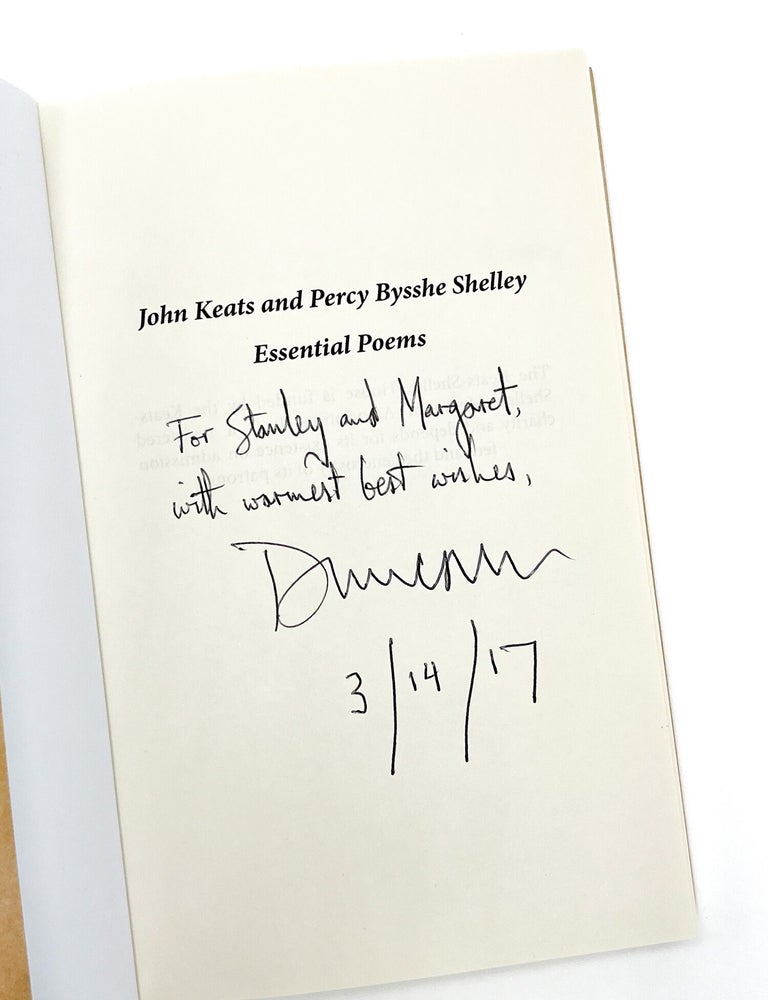 John Keats and Percy Bysshe Shelley
Essential Poems
For Stanley and Margaret,
with warmest best wishes,
Duncan
3/14/17